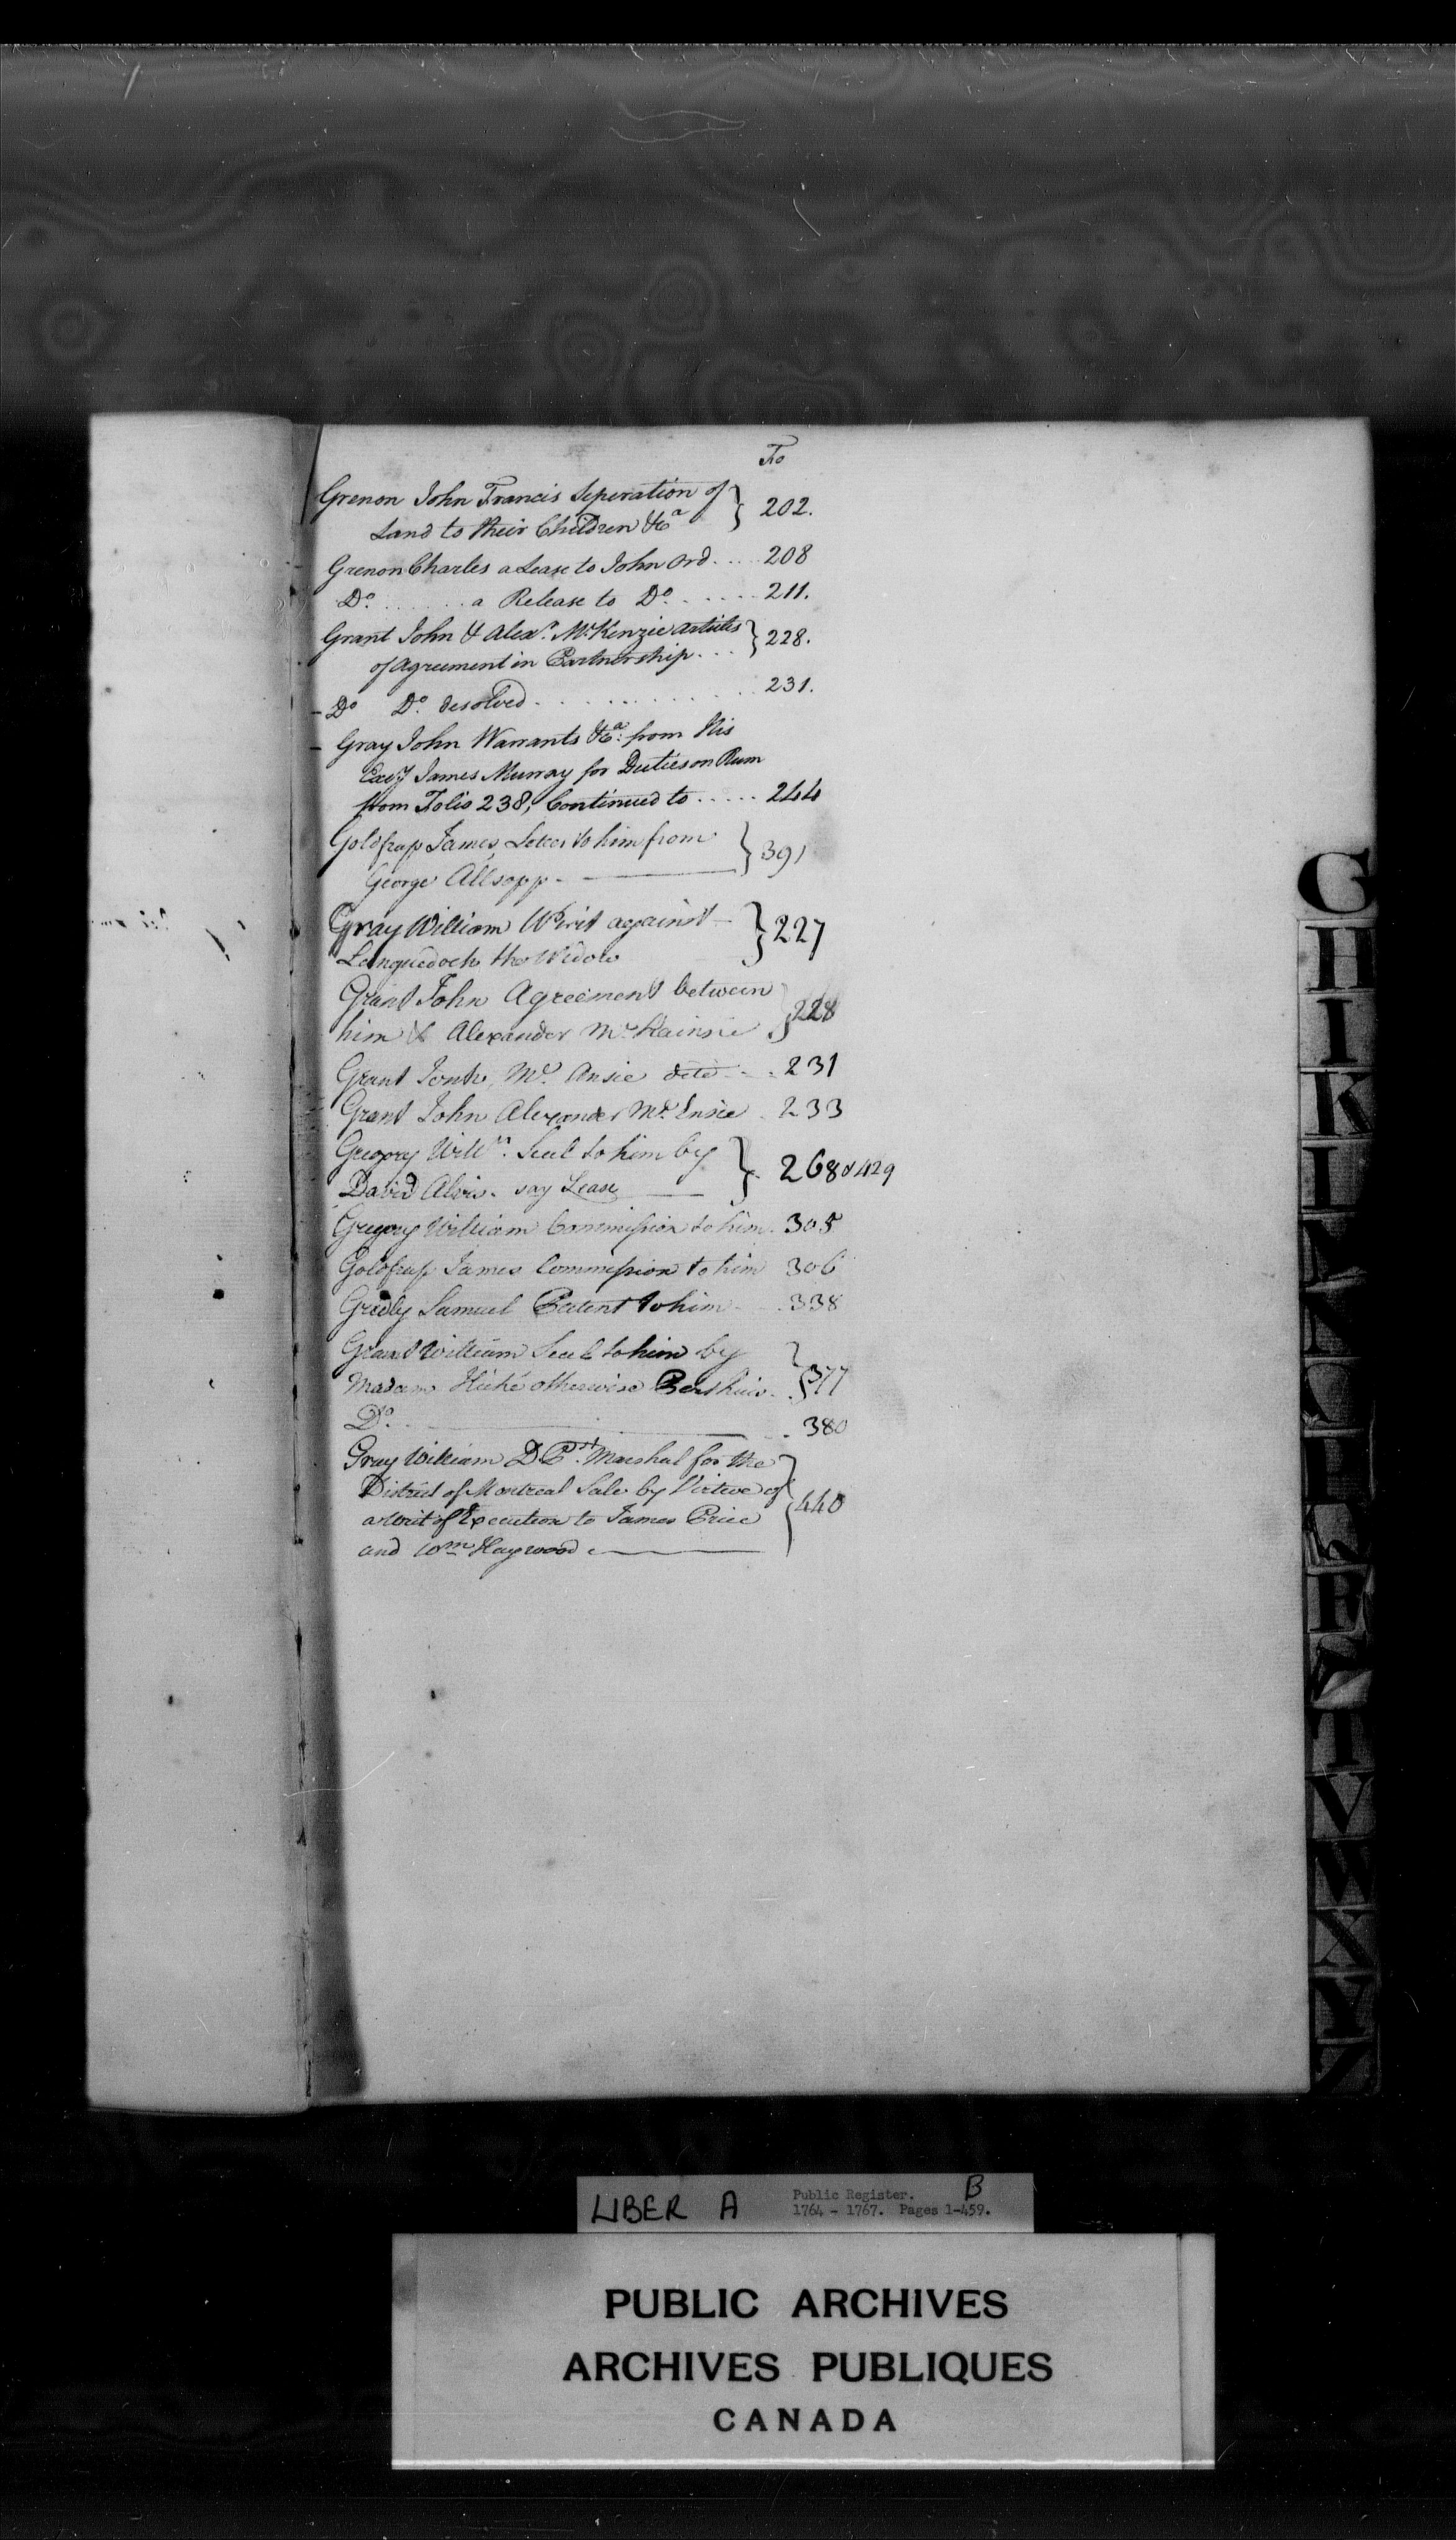 Fo
Grenon John Francis Seperation of } 202.
Land to their Children &Ca
Grenon Charles a Lease to John Ord .... 208
Do. ...... a Release to Do. ..... 211.
Grant John & Alexr. McKenzie Articles } 228.
of Agreement in Partnership ...
- Do Do. desolved ......... 231.
- Gray John Warrants &Ca: from His
Excy James Murray for Duties on Rum
from Folio 238, Continued to ..... 244
Goldfrap James, Letter to him from } 391
George Allsopp
Gray William Writ against } 227
Languedock the Widow
Grant John Agreement between } 228
him & Alexander McKainsie
Grant Mc. Ansie 231
Grant John Alexander Mc. Ensie . 233
Gregory Willm. Seal to him by } 268 & 429
David Alvis. say Lease
Gregory William Commission to him . 305
Goldfrap James Commission to him 306
Gredly Samuel Patent to him 338
Grant William Seal to him by } 377
Madam otherwise
Do. 380
Gray William D.Pst. Marshal for the } 440
District of Montreal Sale by Virtue of
a Writ of Execution to James Price
and Wm Haywood
G
H
I
K
L
M
N
O
P
Q
R
S
T
V
W
X
Y
Z
LIBER A Public Register. B
1764 - 1767. Pages 1-459.
PUBLIC ARCHIVES
ARCHIVES PUBLIQUES
CANADA